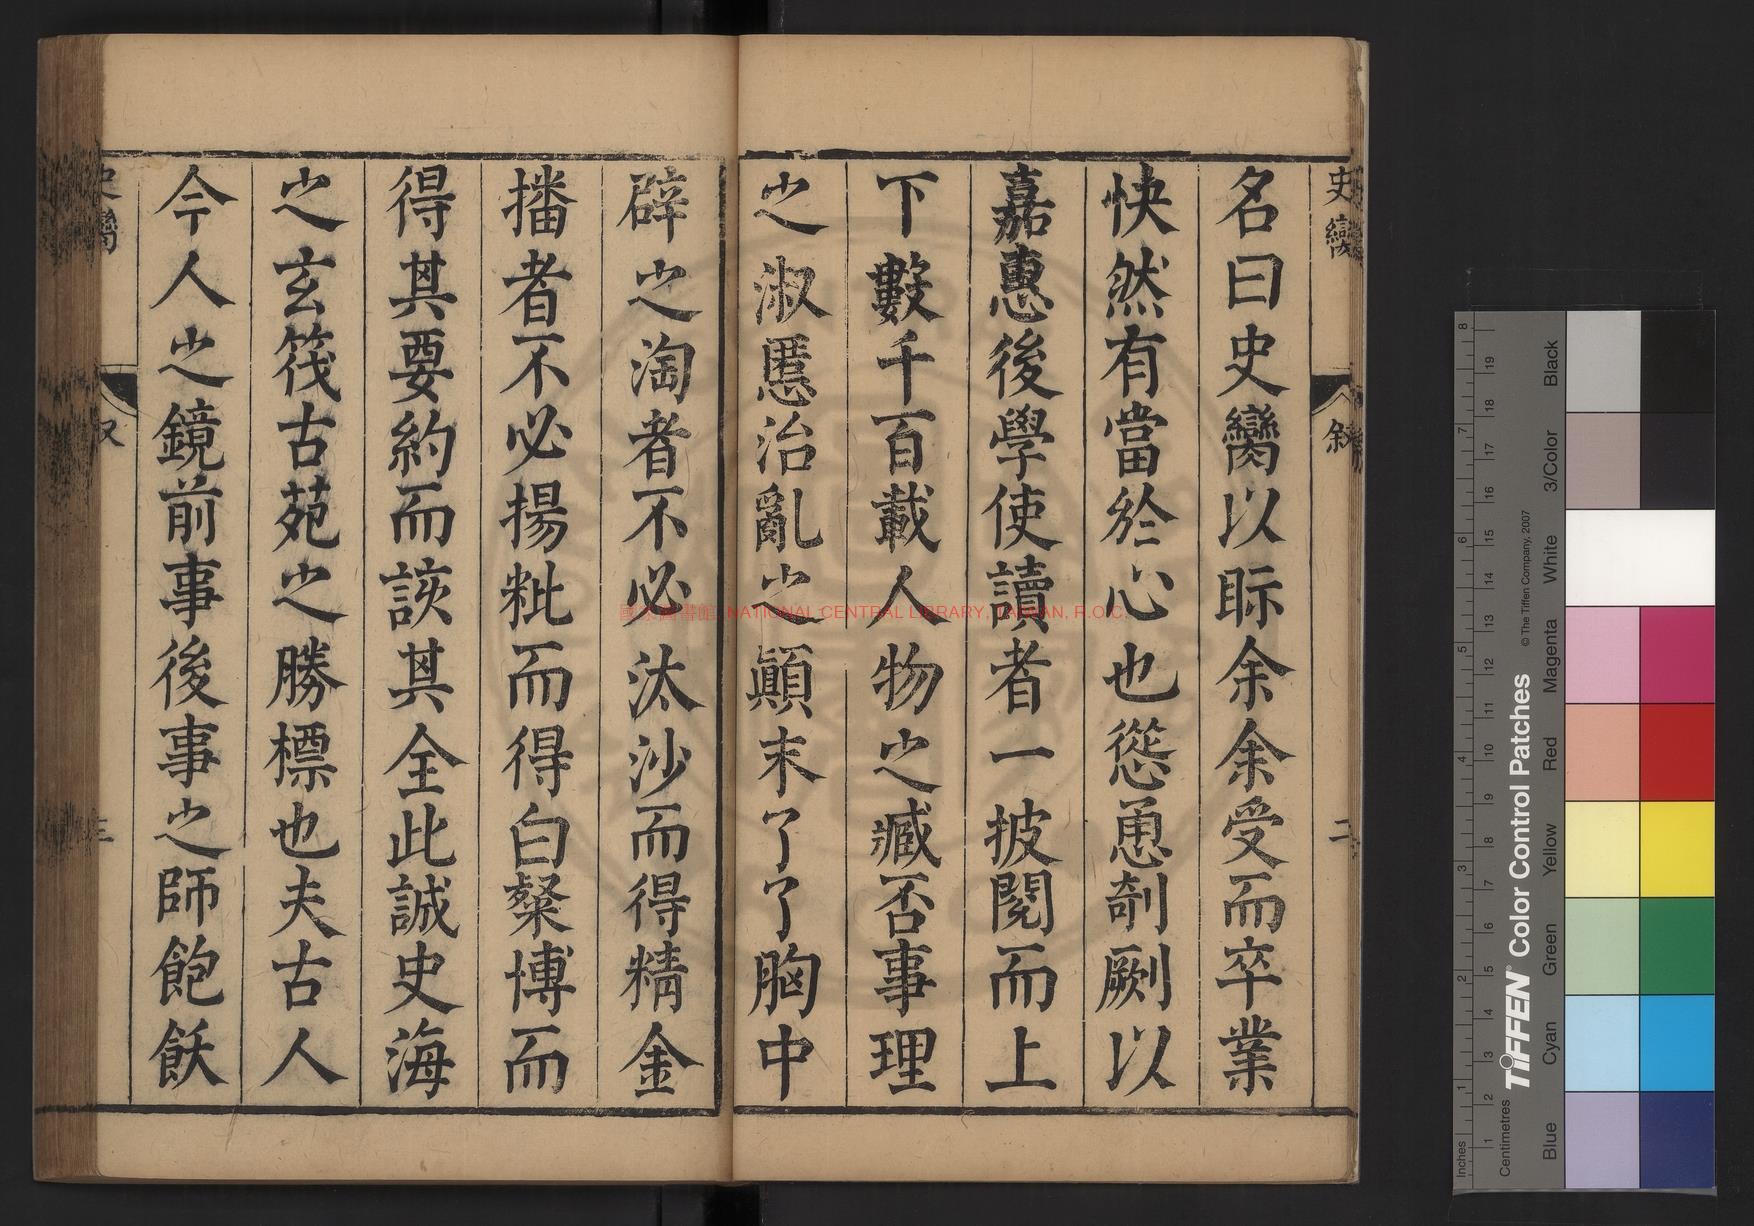 史臠
敘
二
名曰史臠以眎余余受而卒業
快然有當於心也慫恿剞劂以
嘉惠後學使讀者一披閱而上
下數千百載人物之臧否事理
之淑慝治亂之顛末了了胸中
辟之淘者不必汰沙而得精金
播者不必揚粃而得白粲博而
得其要約而該其全此誠史海
之玄筏古苑之勝標也夫古人
今人之鏡前事後事之師飽飫
史臠
三
國家圖書館, NATIONAL CENTRAL LIBRARY, TAIWAN, R.O.C.
TIFFEN® Color Control Patches
© The Tiffen Company, 2007
Centimetres
Inches
Blue
Cyan
Green
Yellow
Red
Magenta
White
3/Color
Black